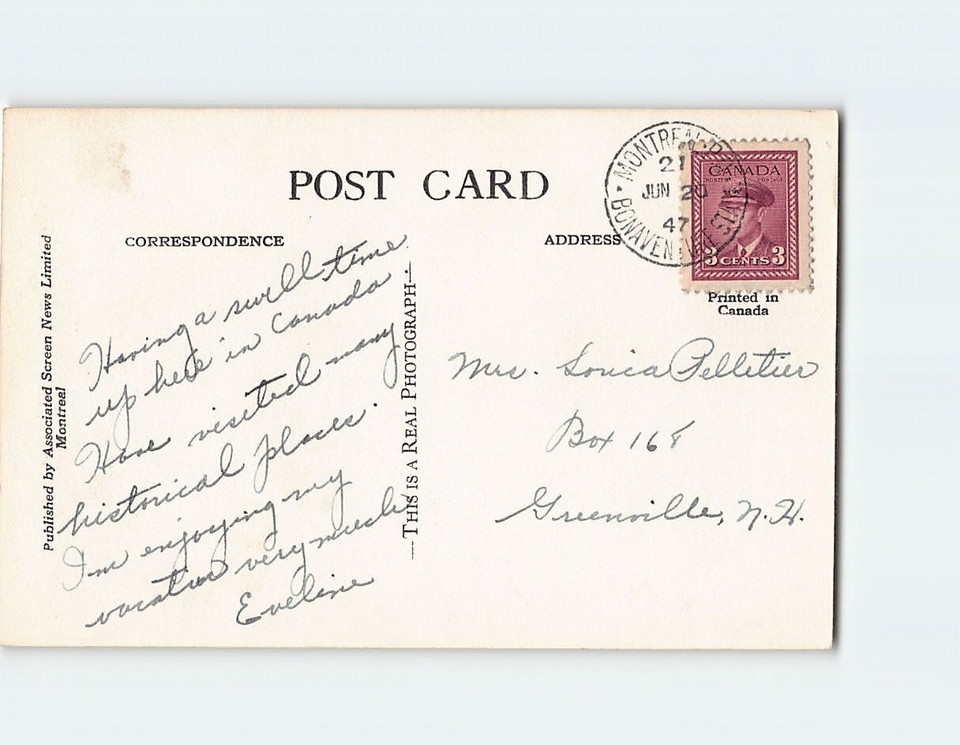 POST CARD
CORRESPONDENCE
ADDRESS
Published by Associated Screen News Limited
Montreal
Having a swell time
up here in Canada.
Have visited many
historical places.
I'm enjoying my
vacation very much.
Eveline
—THIS IS A REAL PHOTOGRAPH—
MONTREAL
21
JUN 20
47
CANADA
POSTES POSTAGE
3 CENTS 3
Printed in
Canada
Mrs. Pelletier
Box 168
Greenville, N.H.